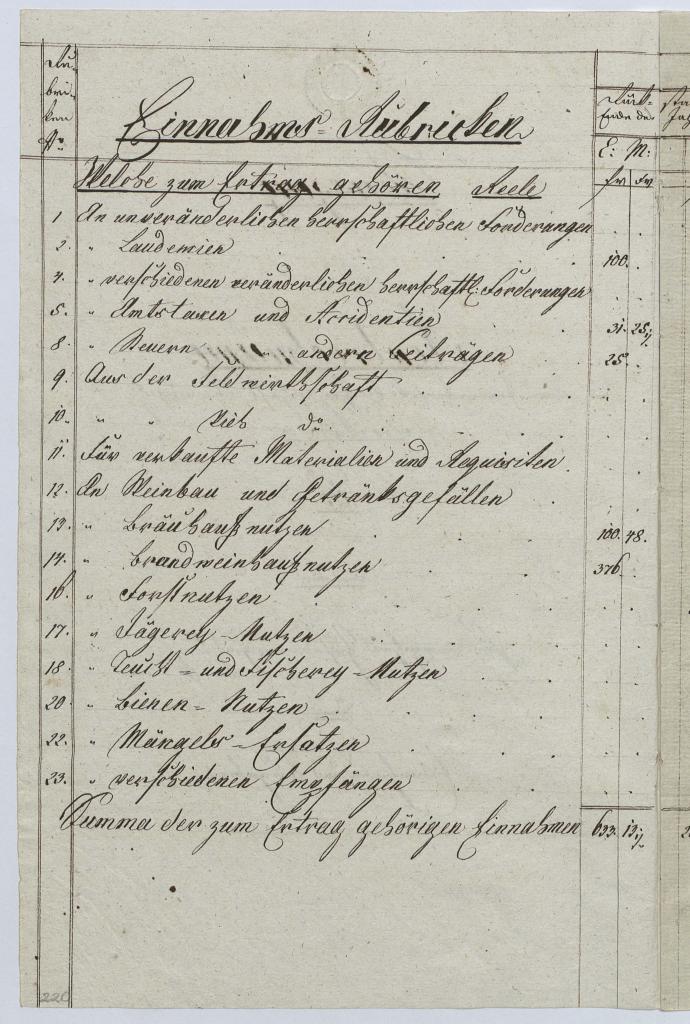 Ru-
bri-
ken
No
Einnahms-Rubricken
Rück-
Ende der
E: M:
fr fr
Welche zum Ertrag gehören Reele
1 An unveränderlichen herrschaftlichen Forderungen
2. " Laudemien 100.
4. " verschiedenen veränderlichen herrschaftl: Forderungen
5. " Amtstaxen und Accidentien 31. 25
8. " Steuern andern Beiträgen 25
9. Aus der Feldwirthschaft
10. " " Vieh do
11. Für verkaufte Materialien und Requisiten
12. An Weinbau und Getränksgefällen
13. " Bräuhaußnutzen 100. 48.
14. " Brandweinhaußnutzen 376.
16. " Forstnutzen
17. " Jägerey-Nutzen
18. " Teucht- und Fischerey-Nutzen
20. " Bienen-Nutzen
22. " Mängels-Ersatzen
23. " verschiedenen Empfängen
Summa der zum Ertrag gehörigen Einnahmen 633. 13
220